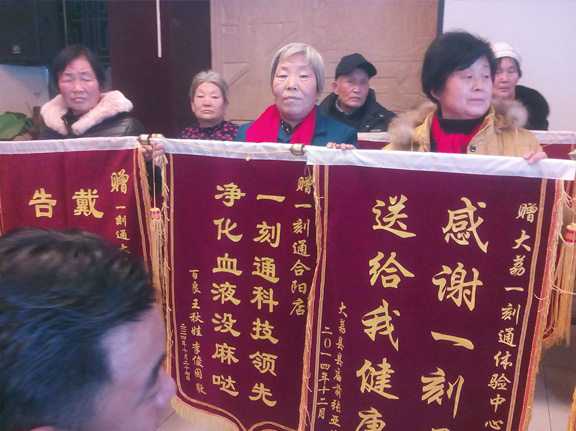 赠大荔一刻通体验中心
感谢一刻
送给我健康
大荔县县庙前张亚
二〇一四年十二月
赠一刻通合阳店
一刻通科技领先
净化血液没麻哒
百良王秋 李俊国 敬
二〇一四年十月二十七日
赠一刻通
戴
告